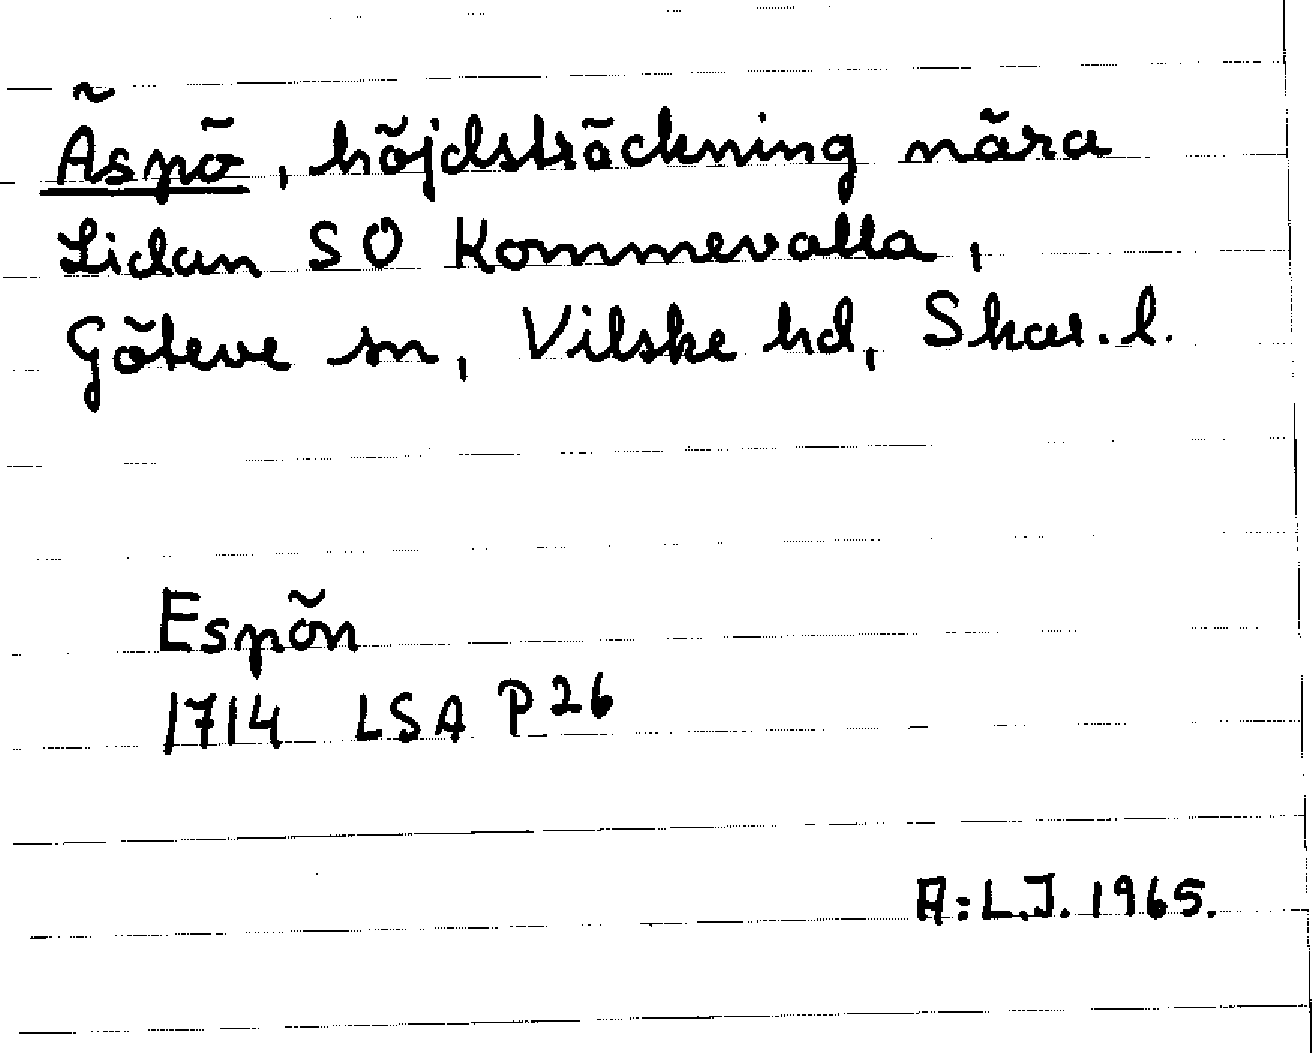 Äspö, höjdsträckning nära
Lidan SO Kommevalla,
Göteve sn, Vilske hd, Skar. l.
Espön
1714 LSA P 26
A:L.J. 1965.